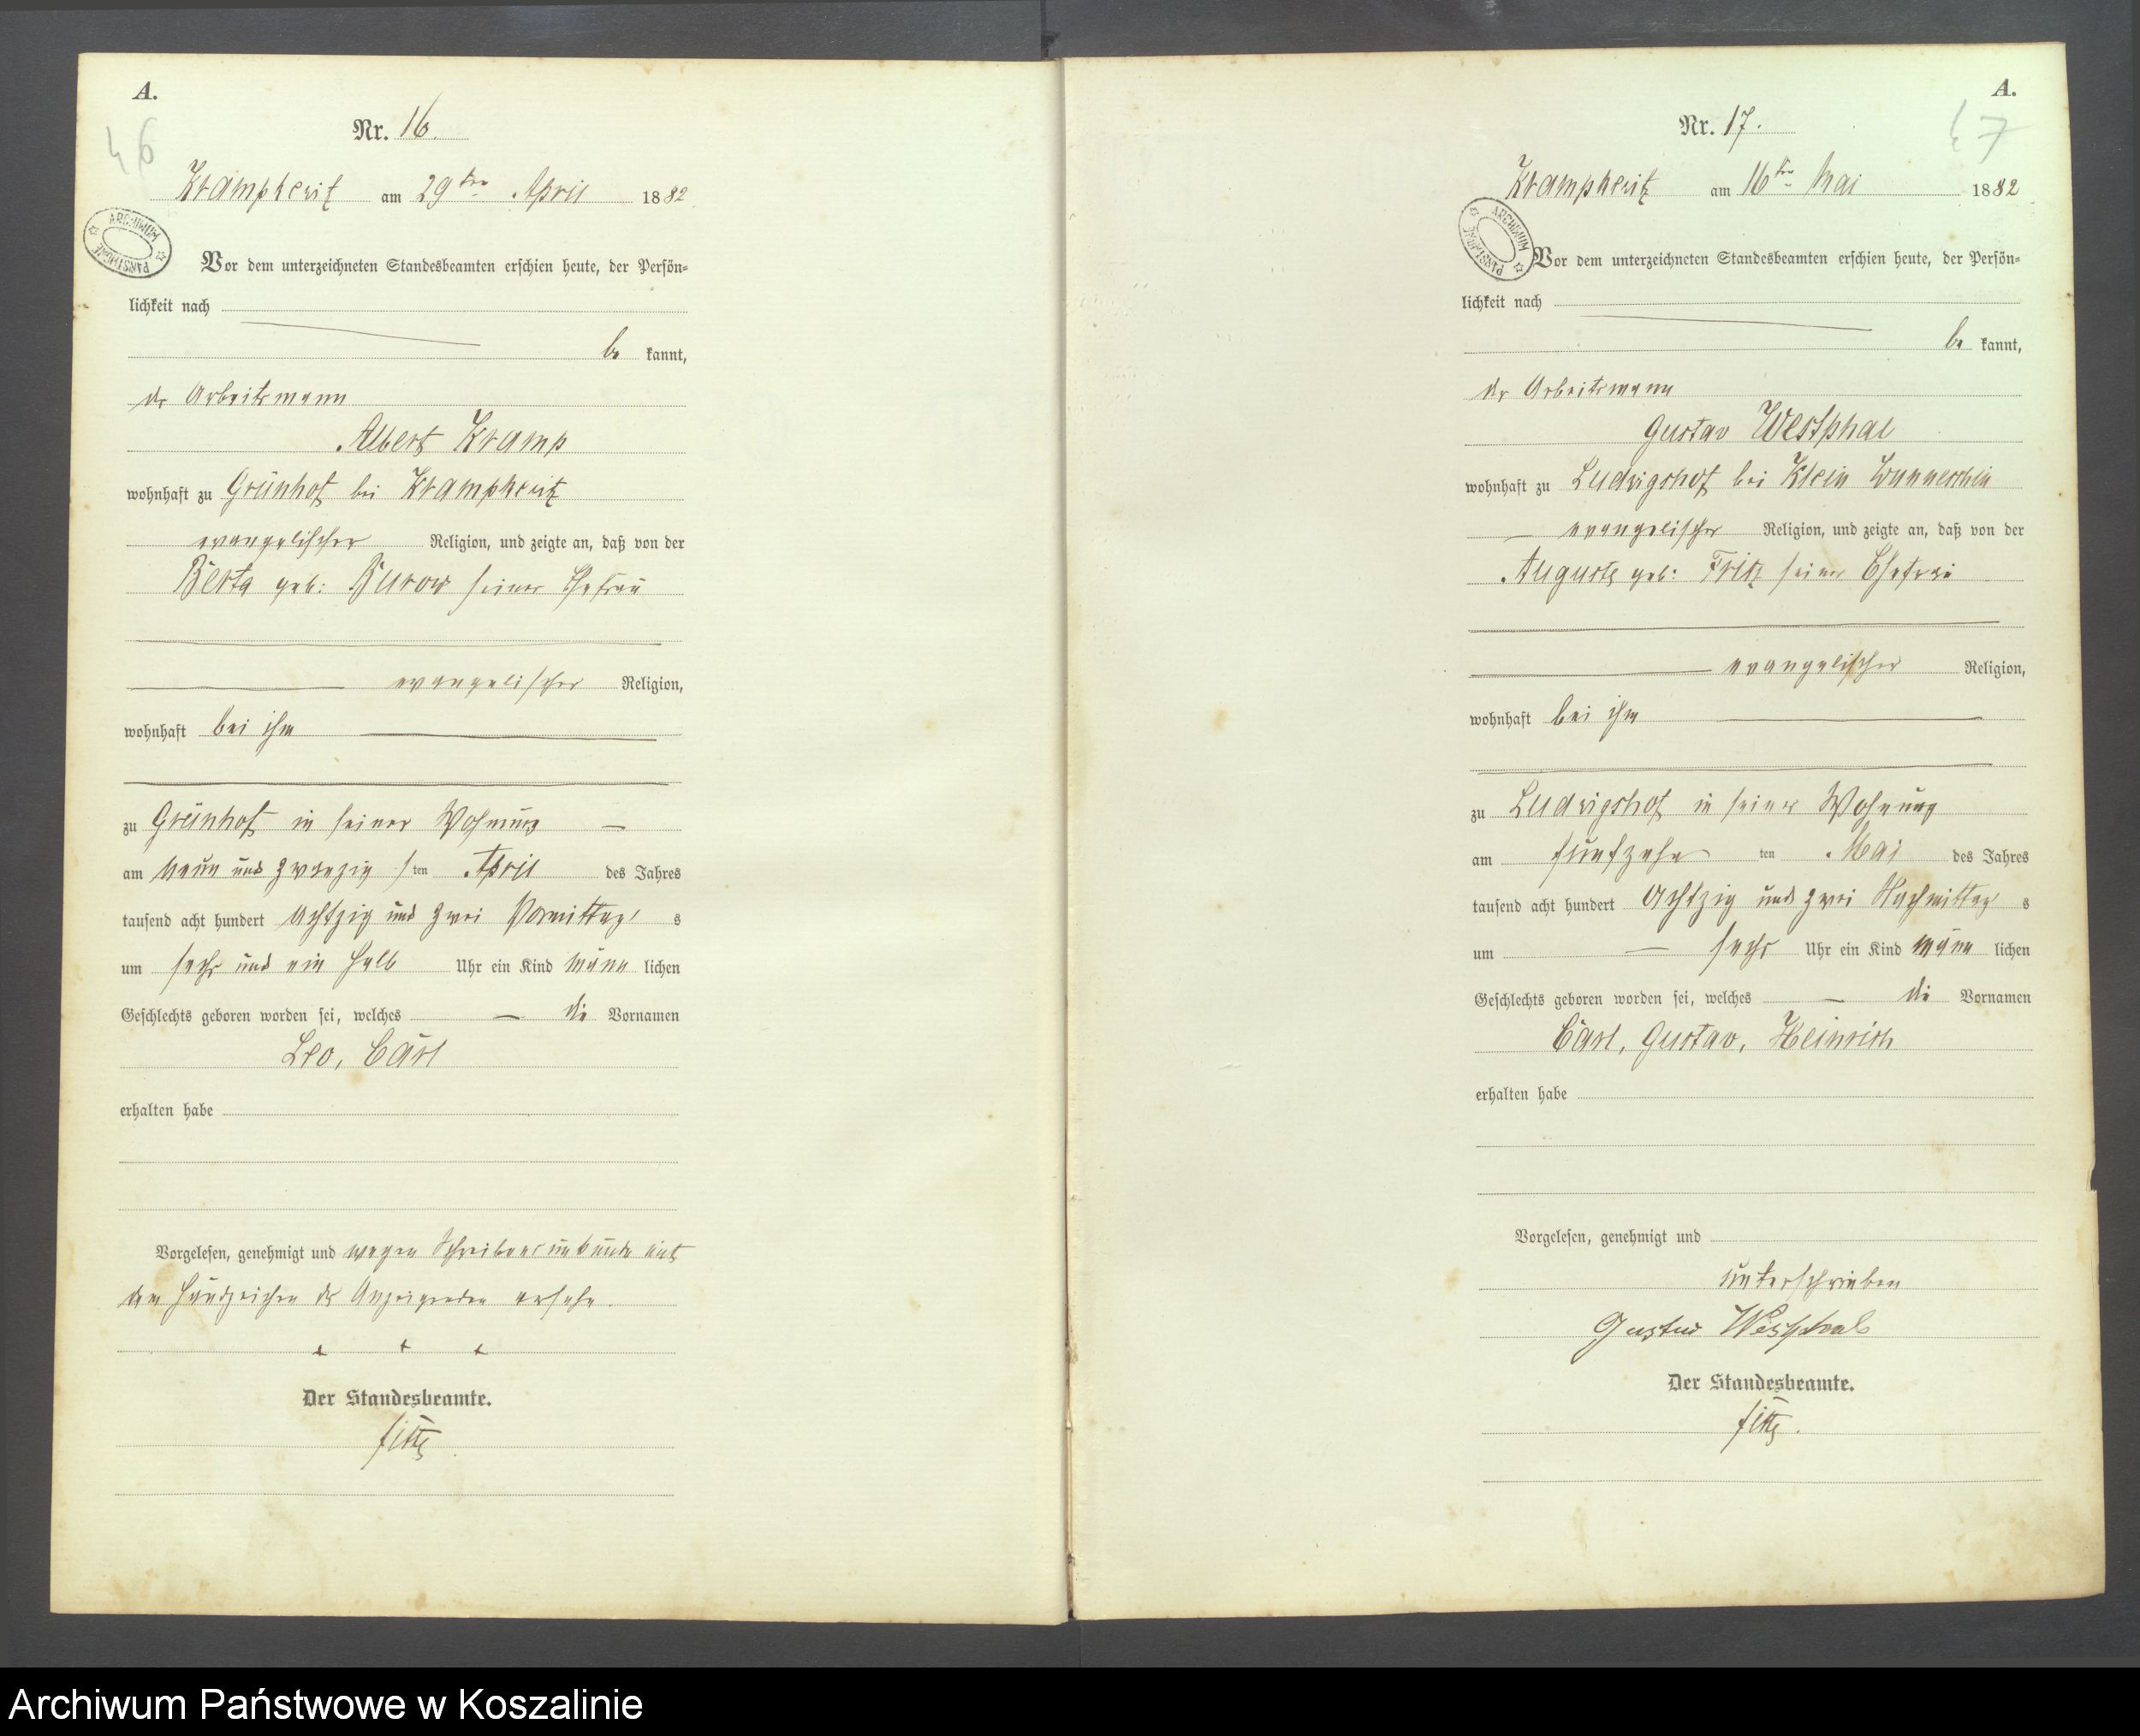 A.
46
Nr. 16.
Krampkewitz am 29ten April 1882
ARCHIWUM PAŃSTWOWE
Vor dem unterzeichneten Standesbeamten erschien heute, der Persön=
lichkeit nach
be kannt,
der Arbeitsmann
Albert Kramp
wohnhaft zu Grünhof bei Krampkewitz
evangelischer Religion, und zeigte an, daß von der
Berta geb: Burow seiner Ehefrau
evangelischer Religion,
wohnhaft bei ihm
zu Grünhof in seiner Wohnung
am neun und zwanzigsten April des Jahres
tausend acht hundert achtzig und zwei Vormittags
um sechs und ein halb Uhr ein Kind männ lichen
Geschlechts geboren worden sei, welches die Vornamen
Leo, Carl
erhalten habe
Vorgelesen, genehmigt und wegen Schreibensunkunde mit
dem Handzeichen des Anzeigenden versehn.
+ + +
Der Standesbeamte.
A.
47
Nr. 17.
Krampkewitz am 16ten Mai 1882
ARCHIWUM PAŃSTWOWE
Vor dem unterzeichneten Standesbeamten erschien heute, der Persön=
lichkeit nach
be kannt,
der Arbeitsmann
Gustav Westphal
wohnhaft zu Ludwigshof bei Klein
evangelischer Religion, und zeigte an, daß von der
Auguste geb: Fritz seiner Ehefrau
evangelischer Religion,
wohnhaft bei ihm
zu Ludwigshof in seiner Wohnung
am fünfzehn ten Mai des Jahres
tausend acht hundert achtzig und zwei Nachmittags
um sechs Uhr ein Kind männ lichen
Geschlechts geboren worden sei, welches die Vornamen
Carl, Gustav, Heinrich
erhalten habe
Vorgelesen, genehmigt und
unterschrieben
Gustav Westphal
Der Standesbeamte.
Archiwum Państwowe w Koszalinie